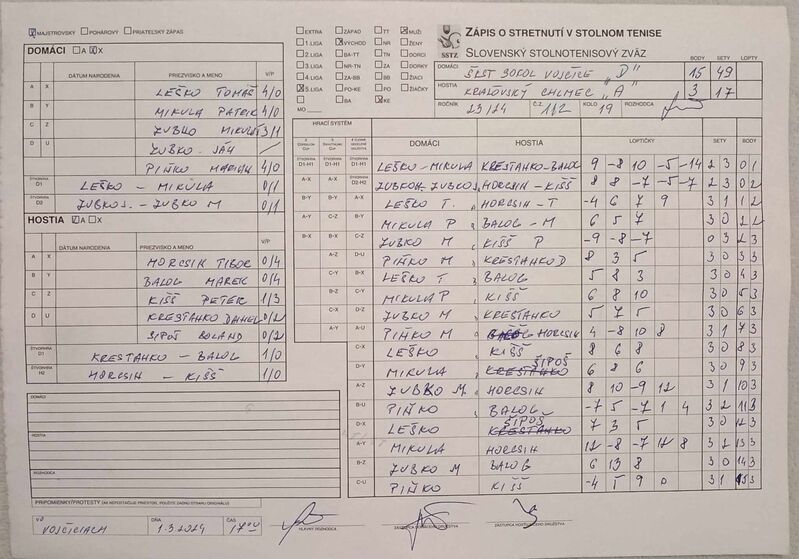 MAJSTROVSKÝ POHÁROVÝ PRIATEĽSKÝ ZÁPAS
DOMÁCI A X
DÁTUM NARODENIA PRIEZVISKO A MENO V/P
A X LEŠKO TOMÁŠ 4/0
B Y MIKULA PATRIK 4/0
C Z ZUBKO MIKULÁŠ 3/1
ZUBKO JÁN /
D U PIŇKO MARIÁN 4/0
ŠTVORHRA D1 LEŠKO - MIKULA 0/1
ŠTVORHRA D2 ZUBKO J. - ZUBKO M 0/1
HOSTIA A X
DÁTUM NARODENIA PRIEZVISKO A MENO V/P
A X HORCSIN TIBOR 0/4
B Y BALOG MAREK 0/4
C Z KIŠŠ PETER 1/3
D U KRESTANKO DANIEL 0/2
SIPOŠ ROLAND 0/2
ŠTVORHRA D1 KRESTANKO - BALOG 1/0
ŠTVORHRA H2 HORCSIN - KIŠŠ 1/0
DOMÁCI
HOSTIA
ROZHODCA
PRIPOMIENKY/PROTESTY (AK NEPOSTAČUJE PRIESTOR, POUŽITE ZADNÚ STRANU ORIGINÁLU)
VO VOJČICIACH DŇA 1.3.2024 ČAS 17 00
HLAVNÝ ROZHODCA
ZÁSTUPCA DOMÁCEHO DRUŽSTVA
ZÁSTUPCA HOSŤUJÚCEHO DRUŽSTVA
EXTRA ZÁPAD TT MUŽI
1.LIGA VÝCHOD NR ŽENY
2.LIGA BA-TT TN DORCI
3.LIGA NR-TN ZA DORKY
4.LIGA ZA-BB BB ŽIACI
5.LIGA PO-KE PO ŽIAČKY
BA KE
MO
ZÁPIS O STRETNUTÍ V STOLNOM TENISE
SSTZ SLOVENSKÝ STOLNOTENISOVÝ ZVÄZ
BODY SETY LOPTY
DOMÁCI ŠKST SOKOL VOJČICE "D" 15 49
HOSTIA KRÁĽOVSKÝ CHLMEC "A" 3 17
ROČNÍK 23/24 Č.Z. 112 KOLO 19 ROZHODCA
HRACÍ SYSTÉM
DOMÁCI HOSTIA LOPTIČKY SETY BODY
ŠTVORHRA D1-H1 ŠTVORHRA D1-H1 ŠTVORHRA D1-H1 LEŠKO - MIKULA KRESTANKO - BALOG 9 -8 10 -5 -14 2 3 0 1
A-X A-X ŠTVORHRA D2-H2 ZUBKO M. ZUBKO J. HORCSIN - KIŠŠ 8 8 -7 -5 -7 2 3 0 2
B-Y B-Y A-X LEŠKO T. HORCSIN - T -4 6 7 9 3 1 1 2
A-Y C-Z B-Y MIKULA P BALOG - M 6 5 7 3 0 2 2
B-X B-X C-Z ZUBKO M KIŠŠ P -9 -8 -7 0 3 2 3
A-Z D-U PIŇKO M KRESTANKO D 8 3 5 3 0 3 3
C-Y B-X LEŠKO T BALOG 5 8 3 3 0 4 3
B-Z C-Y MIKULA P KIŠŠ 6 8 10 3 0 5 3
C-X D-Z ZUBKO M KRESTANKO 5 7 5 3 0 6 3
A-Y A-U PIŇKO M HORCSIN 4 -8 10 8 3 1 7 3
C-X LEŠKO KIŠŠ 8 6 8 3 0 8 3
D-Y MIKULA ŠIPOŠ 6 8 6 3 0 9 3
A-Z ZUBKO M HORCSIN 8 10 -9 12 3 1 10 3
B-U PIŇKO BALOG -7 5 -7 1 4 3 2 11 3
D-X LEŠKO ŠIPOŠ 7 3 5 3 0 12 3
A-Y MIKULA HORCSIN 12 -8 -7 12 8 3 2 13 3
B-Z ZUBKO M BALOG 6 13 8 3 0 14 3
C-U PIŇKO KIŠŠ -4 5 9 0 3 1 15 3